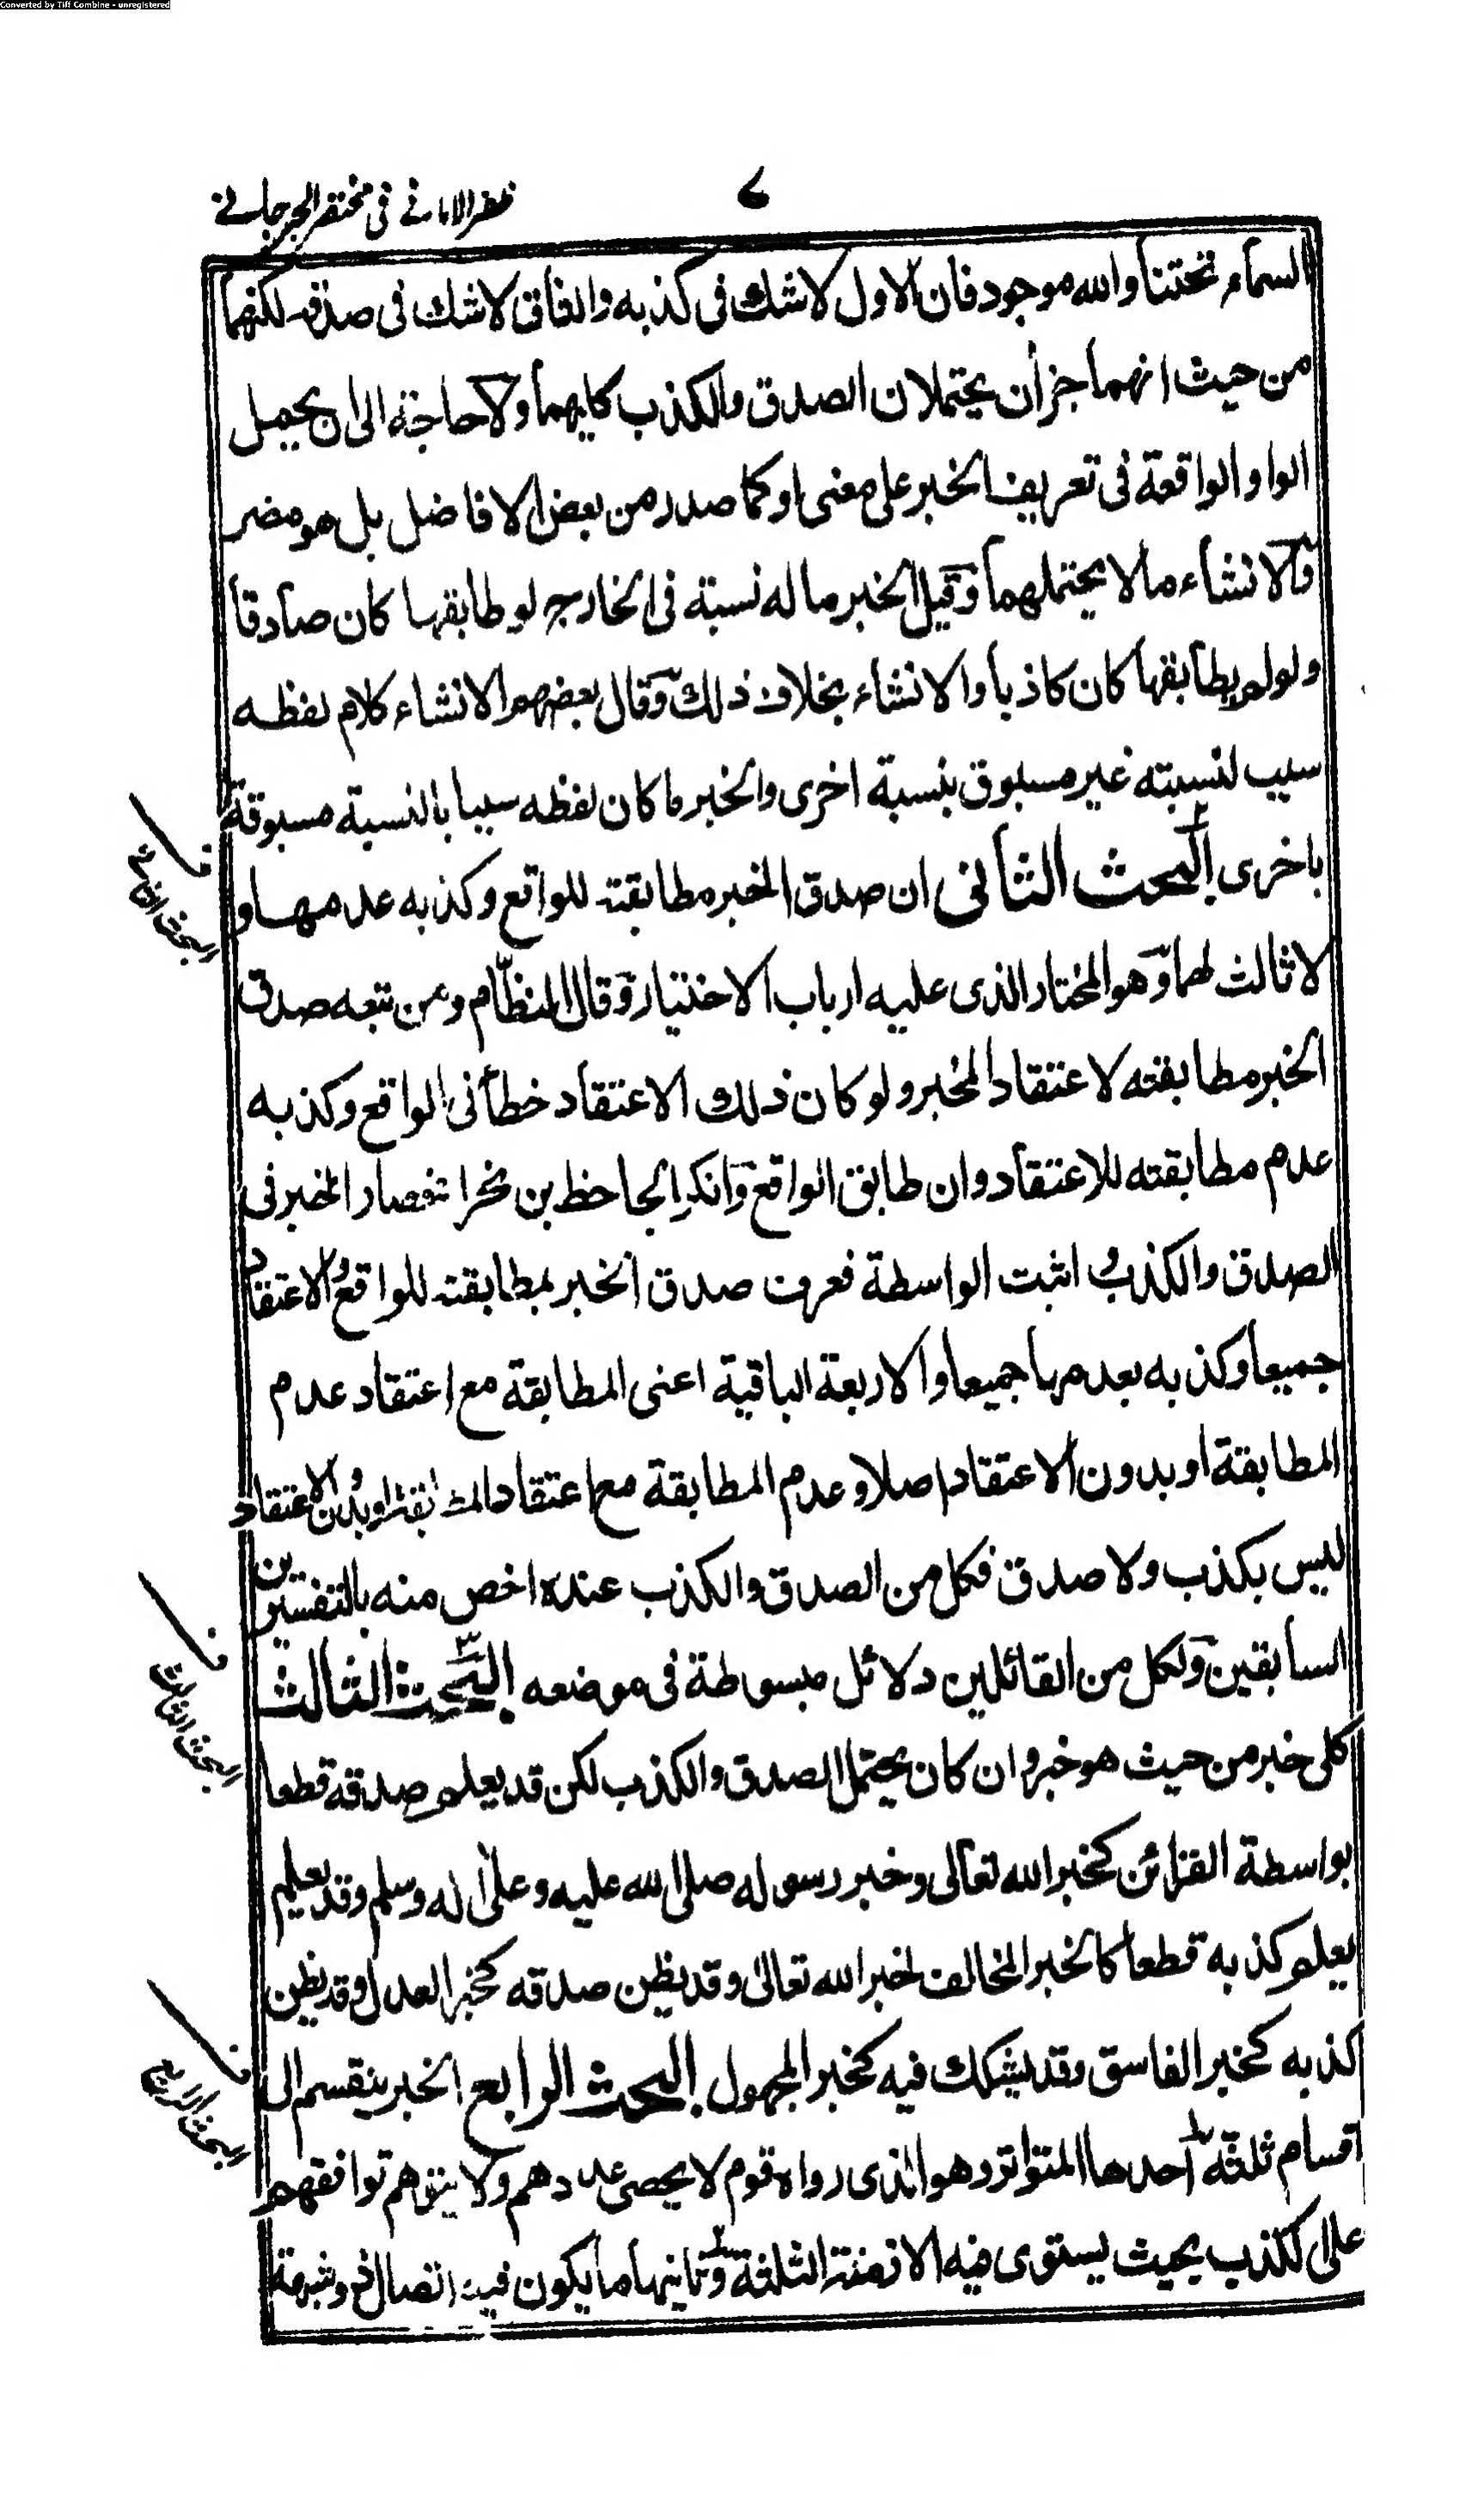 Converted by Tiff Combine - unregistered
ظفر الامانے فی مختصر الجرجانے
۷
السماء تحتنا والله موجود فان الاول لا شك فى كذبه والثانى لا شك فى صدقه لكنهما
من حيث انهما خبران يحتملان الصدق والكذب كليهما ولا حاجة الى ان يجعل
الواو الواقعة فى تعريف الخبر على معنى او كما صدر من بعض الافاضل بل هو مضر
والانشاء ما لا يحتملهما وقيل الخبر ما له نسبة فى الخارج لو طابقها كان صادقا
ولو لم يطابقها كان كاذبا والانشاء بخلاف ذلك وقال بعضهم الانشاء كلام لفظه
سبب لنسبته غير مسبوق بنسبة اخرى والخبر ما كان لفظه سببا بالنسبة مسبوقة
باخرى البحث الثانى ان صدق الخبر مطابقته للواقع وكذبه عدمها و
لا ثالث لهما وهو المختار الذى عليه ارباب الاختيار وقال النظّام ومن تبعه صدق
الخبر مطابقته لاعتقاد المخبر ولو كان ذلك الاعتقاد خطأ فى الواقع وكذبه
عدم مطابقته للاعتقاد وان طابق الواقع وانكر الجاحظ بن بحر انحصار الخبر فى
الصدق والكذب و اثبت الواسطة فعرف صدق الخبر بمطابقته للواقع والاعتقاد
جميعا وكذبه بعدمها جميعا والاربعة الباقية اعنى المطابقة مع اعتقاد عدم
المطابقة او بدون الاعتقاد اصلا وعدم المطابقة مع اعتقاد المطابقة او بدون الاعتقاد
ليس بكذب ولا صدق فكل من الصدق والكذب عنده اخص منه بالتفسيرين
السابقين ولكل من القائلين دلائل مبسوطة فى موضعه البحث الثالث
كل خبر من حيث هو خبر وان كان يحتمل الصدق والكذب لكن قد يعلم صدقه قطعا
بواسطة القرائن كخبر الله تعالى وخبر رسوله صلى الله عليه وعلى اله وسلم وقد يعلم
يعلم كذبه قطعا كالخبر المخالف لخبر الله تعالى وقد يظن صدقه كخبر العدل وقد يظن
كذبه كخبر الفاسق وقد يشكك فيه كخبر المجهول البحث الرابع الخبر ينقسم الى
اقسام ثلثة احدها المتواتر وهو الذى رواه قوم لا يحصى عددهم ولا يتوهم توافقهم
على الكذب بحيث يستوى فيه الازمنة الثلثة وثانيها ما يكون فيه اتصال فيه شبهة
ف
البحث الثانى
ف
البحث الثالث
ف
البحث الرابع